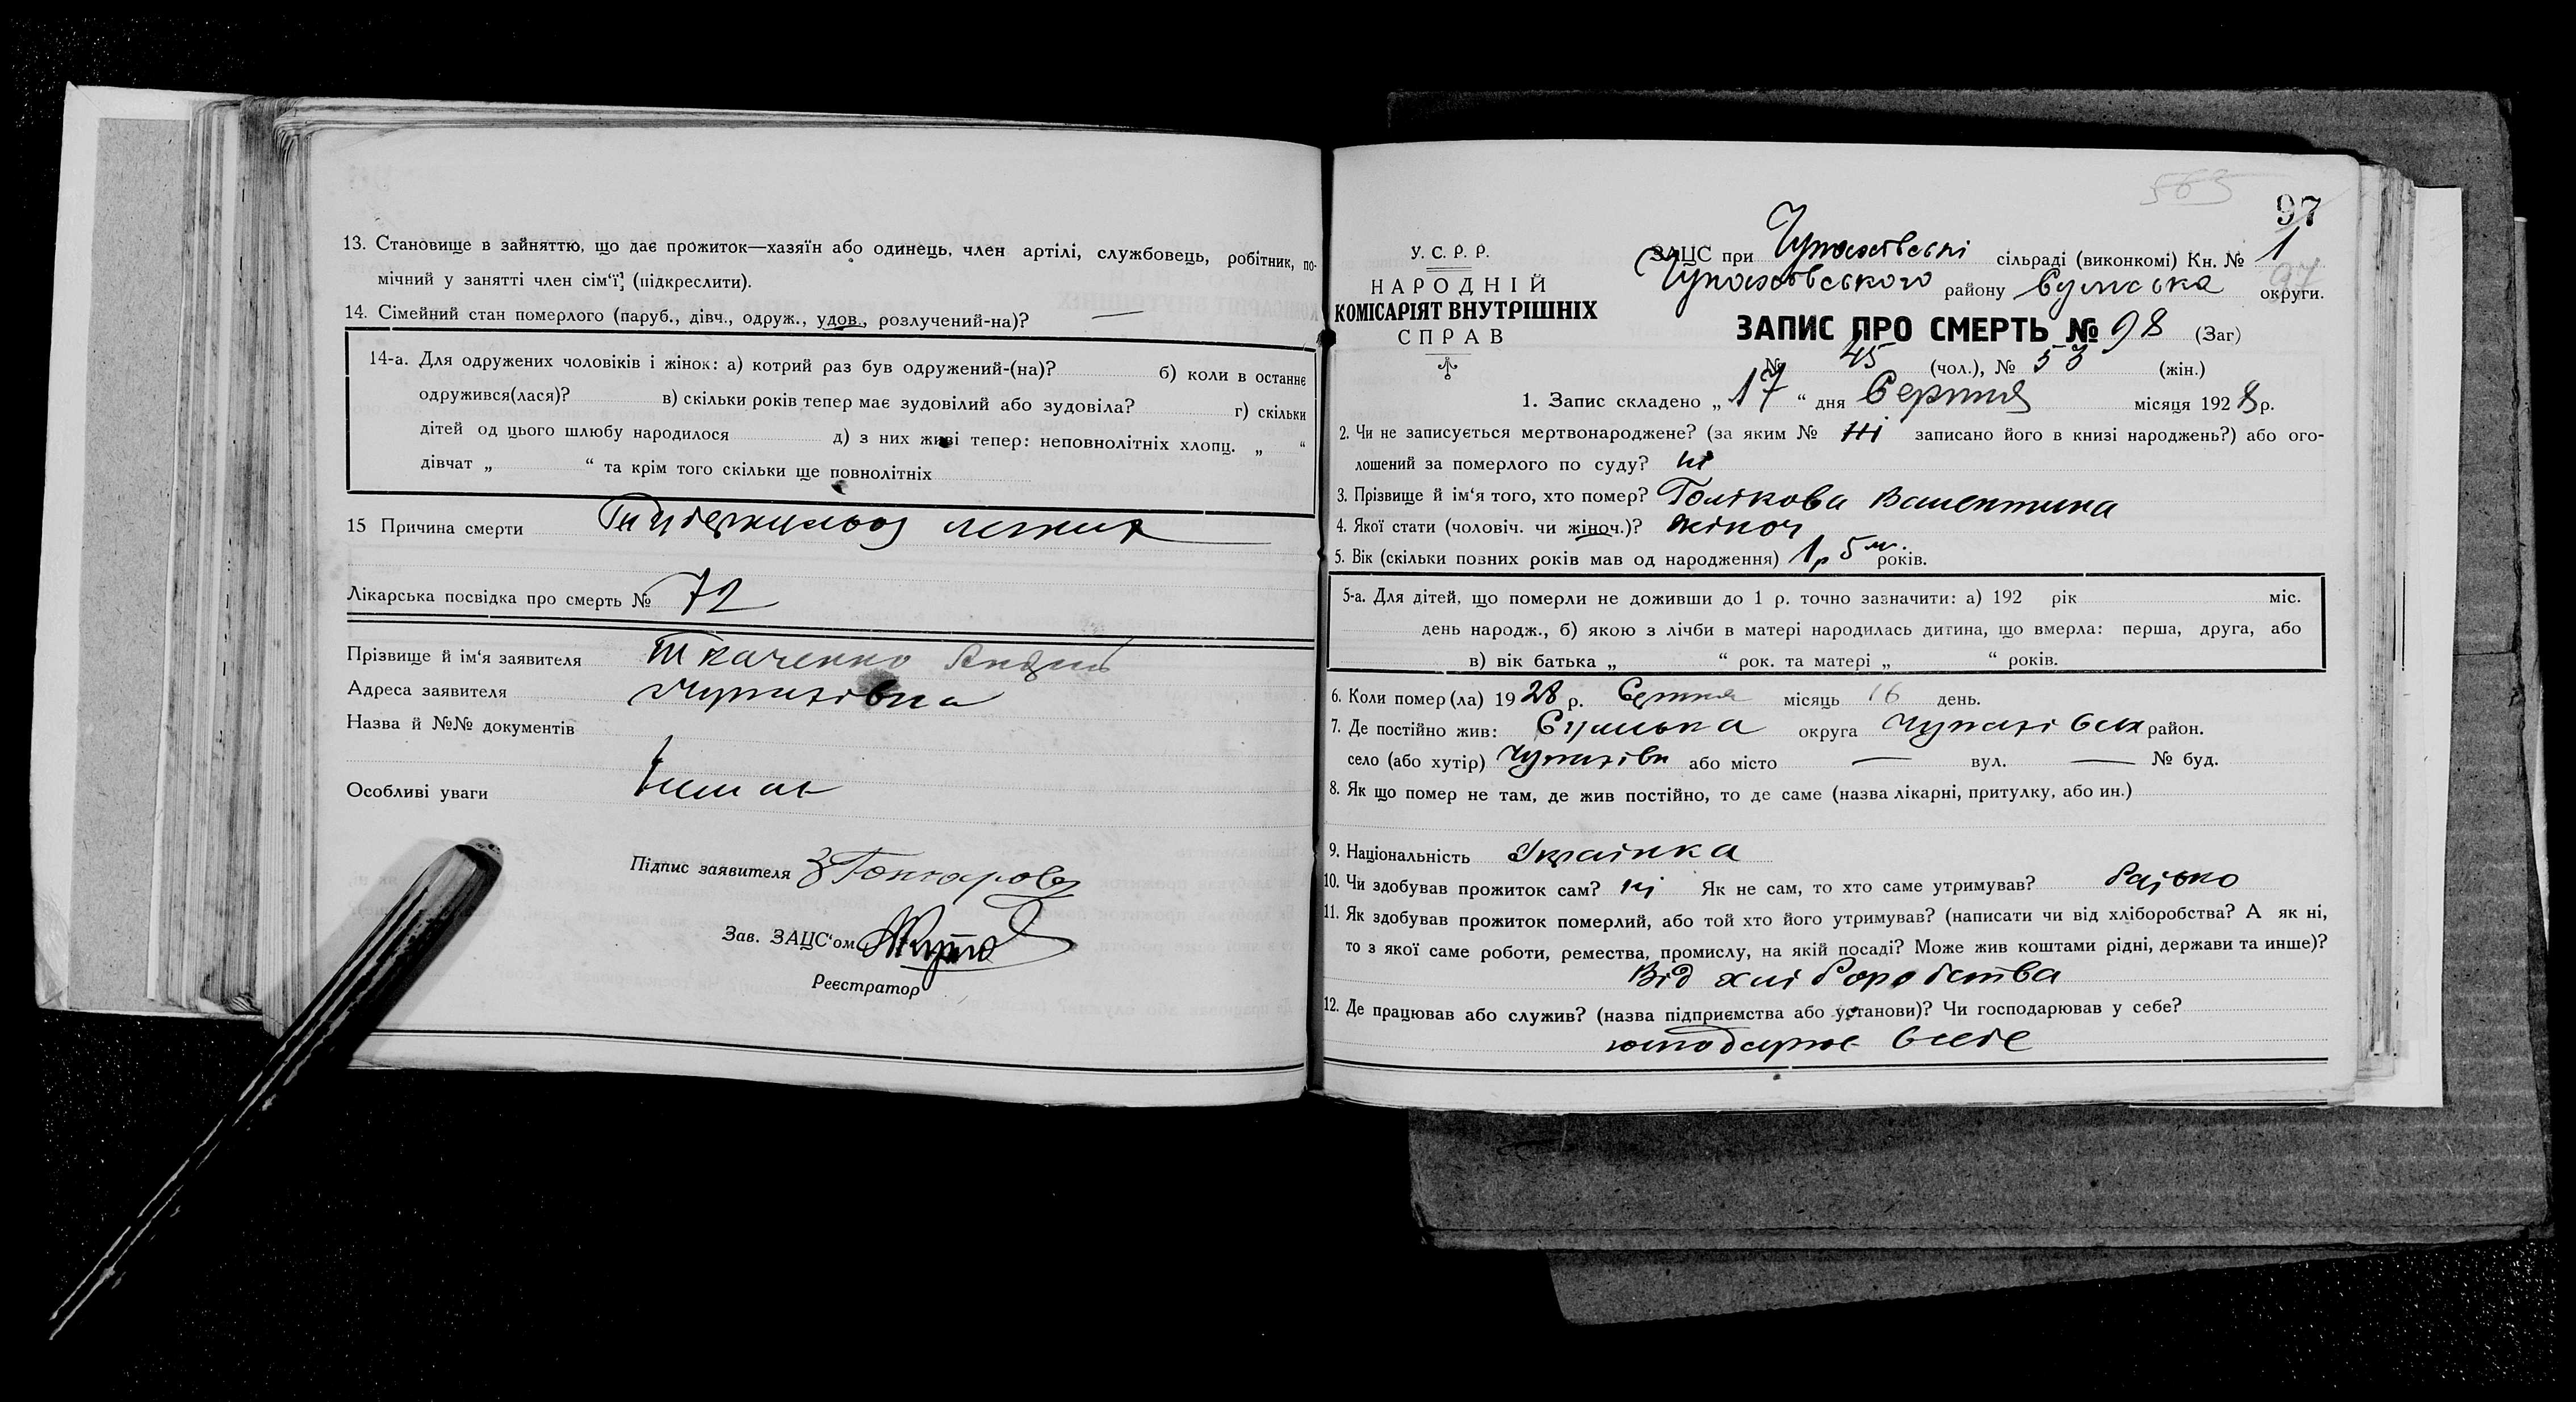 13. Становище в зайняттю, що дає прожиток—хазяїн або одинець, член артілі, службовець, робітник, по-
мічний у занятті член сім'ї, (підкреслити).
14. Сімейний стан померлого (паруб., дівч., одруж., удов., розлучений-на)? —
14-а. Для одружених чоловіків і жінок: а) котрий раз був одружений-(на)? б) коли в останнє
одружився(лася)? в) скільки років тепер має зудовілий або зудовіла? г) скільки
дітей од цього шлюбу народилося д) з них живі тепер: неповнолітніх хлопц. „ “
дівчат „ “ та крім того скільки ще повнолітніх
15 Причина смерти легких
Лікарська посвідка про смерть № 72
Прізвище й ім'я заявителя Ткаченко Андрий
Адреса заявителя Чупахівка
Назва й №№ документів
Особливі уваги Немає
Підпис заявителя З Гончарова
Зав. ЗАЦС'ом
Реєстратор
565
97
У. С. Р. Р.
НАРОДНІЙ
КОМІСАРІЯТ ВНУТРІШНІХ
СПРАВ
ЗАЦС при Чупахівській сільраді (виконкомі) Кн. № 1
97
Чупахівського району Сумська округи.
ЗАПИС ПРО СМЕРТЬ № 98 (Заг)
№ 45 (чол.), № 53 (жін.)
1. Запис складено „ 17 “ дня Серпня місяця 1928 р.
2. Чи не записується мертвонароджене? (за яким № Ні записано його в книзі народжень?) або ого-
лошений за померлого по суду? ні
3. Прізвище й ім'я того, хто помер? Голікова Валентина
4. Якої стати (чоловіч. чи жіноч.)? жіноч
5. Вік (скільки повних років мав од народження) 1 р 5 м. років.
5-а. Для дітей, що померли не доживши до 1 р. точно зазначити: а) 192 рік міс.
день народж., б) якою з лічби в матері народилась дитина, що вмерла: перша, друга, або
в) вік батька „ “ рок. та матері „ “ років.
6. Коли помер(ла) 1928 р. Серпня місяць 16 день.
7. Де постійно жив: Сумська округа Чупахівськ район.
село (або хутір) Чупахівка або місто — вул. — № буд.
8. Як що помер не там, де жив постійно, то де саме (назва лікарні, притулку, або ин.)
9. Національність Українка
10. Чи здобував прожиток сам? ні Як не сам, то хто саме утримував? батько
11. Як здобував прожиток померлий, або той хто його утримував? (написати чи від хліборобства? А як ні,
то з якої саме роботи, ремества, промислу, на якій посаді? Може жив коштами рідні, держави та инше)?
Від хліборобства
12. Де працював або служив? (назва підприємства або установи)? Чи господарював у себе?
господарює в себе